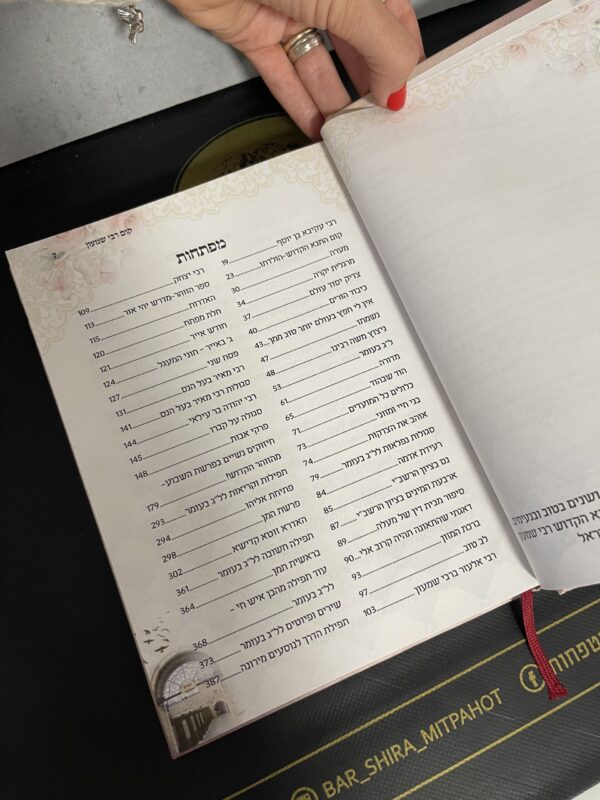 קום רבי שמעון
7
מפתחות
רבי עקיבא בן יוסף 19
קום התנא הקדוש-הולדתו 23
מערה 30
מרגלית יקרה 34
צדיק יסוד עולם 37
כיבוד הורים 40
אין לי חפץ בעולם יותר טוב ממך 43
נשמתו 47
ניצוץ משה רבינו 48
ל"ג בעומר 53
מדורה 61
הוד שבהוד 65
כלולים כל המועדים 71
בני חיי ומזוני 73
אוהב את הצדקות 74
סגולות נפלאות לל"ג בעומר 79
רעידת אדמה 84
נס בציון הרשב"י 85
ארבעת המינים בציון הרשב"י 87
סיפור מבית דין של מעלה 89
דאגתי שהתאונה תהיה קרוב אלי 90
ברכת המזון 93
לב טוב 97
רבי אלעזר ברבי שמעון 103
רבי יצחק 109
ספר הזוהר-מדרש יהי אור 113
האדרות 115
חלת מפתח 120
חודש אייר 121
ג' באייר - חוני המעגל 124
פסח שני 127
רבי מאיר בעל הנס 131
סגולות רבי מאיר בעל הנס 141
רבי יהודה בר עילאי 144
סגולה על קברו 145
פרקי אבות 148
חיזוקים נשיים בפרשת השבוע-
מהזוהר הקדוש! 179
תפילות וקריאות לל"ג בעומר 293
פתיחת אליהו 294
פרשת המן 298
האדרא זוטא קדישא 302
תפילה חשובה לל"ג בעומר 361
בראשית תמן 364
עוד תפילה מהבן איש חי -
לל"ג בעומר 368
שירים ופיוטים לל"ג בעומר 373
תפילת הדרך לנוסעים מירונה 387
בטוב ובנעימים
הקדוש רבי שמעון
BAR_SHIRA_MITPAHOT